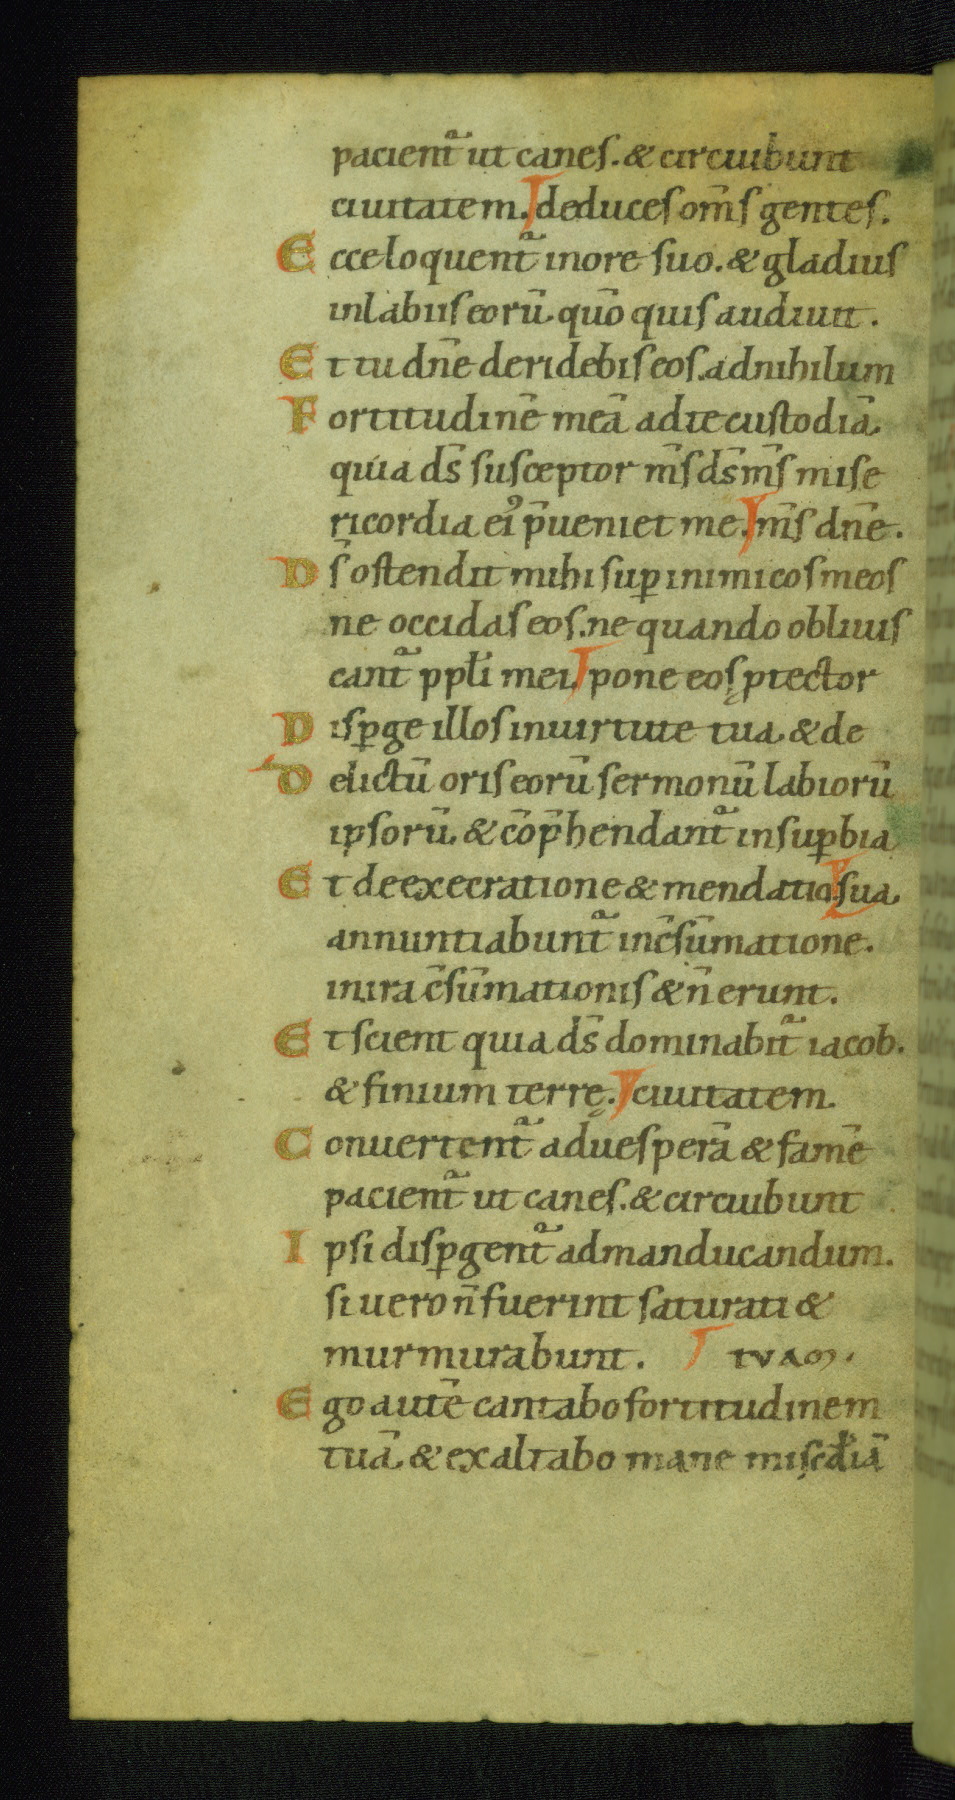 pacient̄ ut canes. & circuibunt
ciuitatem. deduces om̄s gentes.
Ecce loquent̄ in ore suo. & gladius
in labiis eorū quō quis audiuit.
Et tu dn̄e deridebis eos. ad nihilum
Fortitudinē meā ad te custodiā
quia ds̄ susceptor m̄s ds̄ m̄s mise
ricordia ei᾽ p̄ueniet me. m̄s dn̄e.
Ds̄ ostendit mihi sup̄ inimicos meos
ne occidas eos. ne quando obliuis
cant̄ pp̄li mei pone eos ꝓtector
Disp̄ge illos in uirtute tua. & de
Delictū oris eorū sermonū labiorū
ipsorū. & cōp̄hendant̄ in sup̄bia
Et de execratione & mendatio sua.
annuntiabunt̄ in c̄sūmatione.
in ira c̄sūmationis & n̄ erunt.
Et scient quia ds̄ dominabit̄ iacob.
& finium terrę. ciuitatem.
Conuertent̄ ad uesperā & famē
pacient̄ ut canes. & circuibunt
Ipsi disp̄gent̄ ad manducandum.
si uero n̄ fuerint saturati &
murmurabunt. TVAM.
Ego autē cantabo fortitudinem
tuā. & exaltabo mane misc̄diā